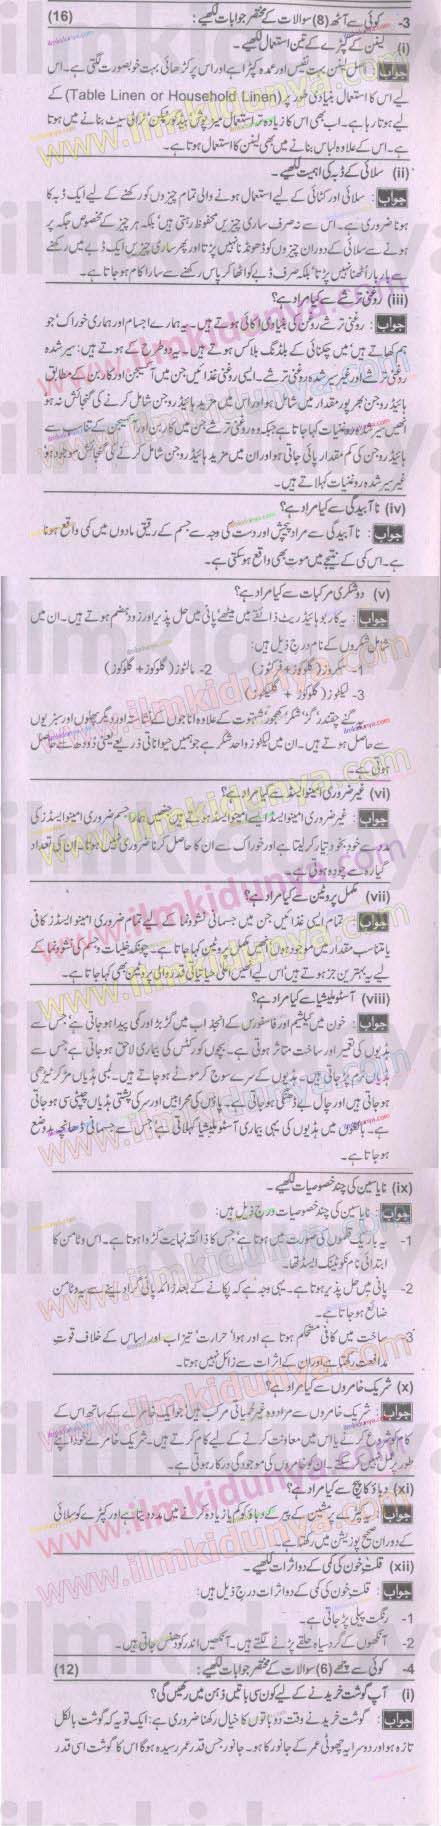 3- کوئی سے آٹھ (8) سوالات کے مختصر جوابات لکھیے : (16)
(i) لینن کے کپڑے کے تین استعمال لکھیے ۔
جواب : اصل لینن بہت نفیس اور عمدہ کپڑا ہے اور اس پر کڑھائی بہت خوبصورت لگتی ہے۔ اس
لیے اس کا استعمال بنیادی طور پر (Table Linen or Household Linen) کے
لیے ہوتا رہا ہے۔ اب بھی اس کا زیادہ تر استعمال میز پوش، بیڈ کور، نیپکن، ٹرالی سیٹ بنانے میں ہوتا
ہے۔ اس کے علاوہ لباس بنانے میں بھی لینن کا استعمال ہوتا ہے۔
(ii) سلائی کے ڈبہ کی اہمیت لکھیے ۔
جواب : سلائی اور کٹائی کے لیے استعمال ہونے والی تمام چیزوں کو رکھنے کے لیے ایک ڈبہ کا
ہونا ضروری ہے۔ اس سے نہ صرف ساری چیزیں محفوظ رہتی ہیں بلکہ ہر چیز کے مخصوص جگہ پر
ہونے سے سلائی کے دوران چیزوں کو ڈھونڈنا نہیں پڑتا اور پھر ساری چیزیں ایک ڈبے میں رکھنے
سے بار بار اٹھنا نہیں پڑتا بلکہ صرف ڈبے کو اٹھا کر پاس رکھنے سے سارا کام ہو جاتا ہے۔
(iii) روغنی ترشے سے کیا مراد ہے؟
جواب : روغنی ترشے روغن کی بنیادی اکائی ہوتے ہیں۔ یہ ہمارے اجسام اور ہماری خوراک' جو
ہم کھاتے ہیں' میں چکنائی کے بلڈنگ بلاکس ہوتے ہیں۔ یہ دو طرح کے ہوتے ہیں: سیر شدہ
روغنی ترشے اور غیر سیر شدہ روغنی ترشے۔ ایسی روغنی غذائیں جن میں آکسیجن اور کاربن کے مطابق
ہائیڈروجن بھرپور مقدار میں شامل ہو اور اس میں مزید ہائیڈروجن شامل کرنے کی گنجائش نہ ہو
انھیں سیر شدہ روغنیات کہا جاتا ہے جبکہ وہ روغنی ترشے جن میں کاربن اور آکسیجن کے تناسب سے
ہائیڈروجن کی کم مقدار پائی جاتی ہو اور ان میں مزید ہائیڈروجن شامل کرنے کی گنجائش موجود ہو
غیر سیر شدہ روغنیات کہلاتے ہیں۔
(iv) ناآبیدگی سے کیا مراد ہے؟
جواب : ناآبیدگی سے مراد پیچش اور دست کی وجہ سے جسم کے رقیق مادوں میں کمی واقع ہونا
ہے۔ اس کمی کے نتیجے میں موت بھی واقع ہو سکتی ہے۔
(v) دو شکری مرکبات سے کیا مراد ہے؟
جواب : یہ کاربوہائیڈریٹ ذائقے میں میٹھے' پانی میں حل پذیر اور زود ہضم ہوتے ہیں۔ ان میں
شامل شکروں کے نام درج ذیل ہیں:
1- سکروز (گلوکوز + فرکٹوز) 2- مالٹوز (گلوکوز + گلوکوز)
3- لیکوز (گلوکوز + گلیکوز)
یہ گنے' چقندر' گڑ' شکر' کھجور' شہتوت کے علاوہ اناجوں کے نشاستہ اور دیگر پھلوں اور سبزیوں
سے حاصل ہوتے ہیں۔ ان میں لیکوز واحد شکر ہے جو ہمیں حیواناتی ذریعے یعنی دودھ سے حاصل
ہوتی ہے۔
(vi) غیر ضروری امینو ایسڈ سے کیا مراد ہے؟
جواب : غیر ضروری امینو ایسڈ ایسے امینو ایسڈ ہوتے ہیں جنھیں ہمارا جسم ضروری امینو ایسڈز کی
مدد سے خود بخود تیار کر لیتا ہے اور خوراک سے ان کا حاصل کرنا ضروری نہیں ہوتا۔ ان کی تعداد
گیارہ سے چودہ ہوتی ہے۔
(vii) مکمل پروٹین سے کیا مراد ہے؟
جواب : تمام ایسی غذائیں جن میں جسمانی نشوونما کے لیے تمام ضروری امینو ایسڈز کافی
یا متناسب مقدار میں موجود ہوں انھیں مکمل پروٹین کہا جاتا ہے۔ چونکہ خلیات و جسم کی نشوونما کے
لیے یہ بہترین جز ہوتے ہیں' اس لیے انھیں اعلیٰ حیاتیاتی قدر والی پروٹین بھی کہا جاتا ہے۔
(viii) آسٹوملیشیا سے کیا مراد ہے؟
جواب : خون میں کیلشیم اور فاسفورس کے انجذاب میں گڑبڑ اور کمی پیدا ہو جاتی ہے جس سے
ہڈیوں کی تعمیر اور ساخت متاثر ہوتی ہے۔ بچوں کو رکٹس کی بیماری لاحق ہو جاتی ہے جس سے
ہڈیاں نرم پڑ جاتی ہیں۔ ہڈیوں کے سرے سوج کر موٹے ہو جاتے ہیں۔ لمبی ہڈیاں مڑ کر ٹیڑھی
ہو جاتی ہیں اور چال بے ڈھنگی ہو جاتی ہے۔ پاؤں کی محرابیں اور سر کی پشتی ہڈیاں چپٹی سی ہو جاتی
ہے۔ بالغوں میں ہڈیوں کی یہی بیماری آسٹوملیشیا کہلاتی ہے' جس سے جسمانی ڈھانچہ بدوضع
ہو جاتا ہے۔
(ix) نایاسین کی چند خصوصیات لکھیے ۔
جواب : نایاسین کی چند خصوصیات درج ذیل ہیں:
1- یہ باریک قلموں کی صورت میں ہوتا ہے جس کا ذائقہ نہایت کڑوا ہوتا ہے۔ اس وٹامن کا
ابتدائی نام نکوٹینک ایسڈ تھا۔
2- پانی میں حل پذیر ہوتا ہے۔ یہی وجہ ہے کہ پکانے کے بعد زائد پانی گرا دینے سے یہ وٹامن
ضائع ہو جاتا ہے۔
3- ساخت میں کافی مستحکم ہوتا ہے اور ہوا' حرارت' تیزاب اور اساس کے خلاف قوت
مدافعت رکھتا ہے اور ان کے اثرات سے زائل نہیں ہوتا۔
(x) شریک خامروں سے کیا مراد ہے؟
جواب : شریک خامروں سے مراد وہ غیر لحمیاتی مرکب ہیں' جو ایک خامرے کے ساتھ اس کے
کام کو شروع کرنے یا اس میں معاونت کرنے کے لیے کام کرتے ہیں۔ شریک خامرے خود اپنے
طور پر عمل نہیں کر سکتے۔ ان کو خامروں کی موجودگی درکار ہوتی ہے۔
(xi) دباؤ کا پیچ سے کیا مراد ہے؟
جواب : یہ کپڑے پر مشین کے پیر کے دباؤ کو کم یا زیادہ کرنے میں مدد دیتا ہے اور کپڑے کو سلائی
کے دوران صحیح پوزیشن میں رکھتا ہے۔
(xii) قلت خون کی کمی کے دو اثرات لکھیے ۔
جواب : قلت خون کی کمی کے دو اثرات درج ذیل ہیں:
1- رنگت پیلی پڑ جاتی ہے۔
2- آنکھوں کے گرد سیاہ حلقے پڑنے لگتے ہیں۔ آنکھیں اندر کو دھنس جاتی ہیں۔
4- کوئی سے چھے (6) سوالات کے مختصر جوابات لکھیے : (12)
(i) آپ گوشت خریدنے کے لیے کون سی باتیں ذہن میں رکھیں گی؟
جواب : گوشت خریدتے وقت دو باتوں کا خیال رکھنا ضروری ہے: ایک تو یہ کہ گوشت بالکل
تازہ ہو اور دوسرا یہ چھوٹی عمر کے جانور کا ہو۔ جانور جس قدر عمر رسیدہ ہوگا اس کا گوشت اسی قدر
www.ilmkidunya.com